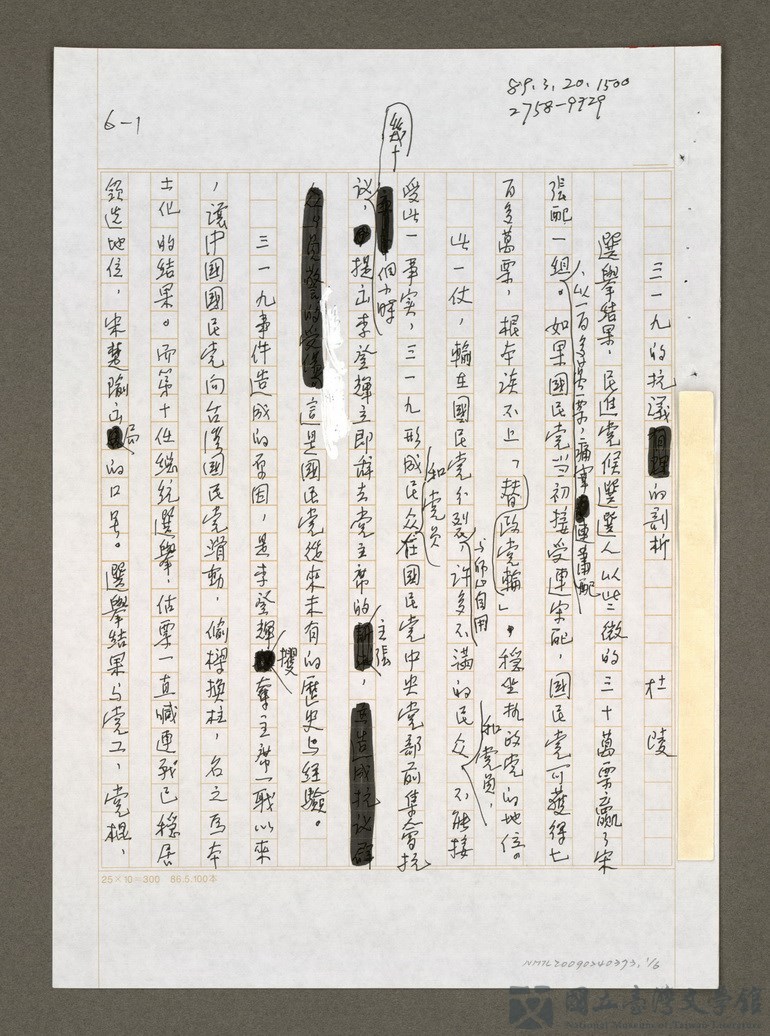 89.3.20.1500
2758-9729
6-1
三一九的抗議的剖析
杜陵
選舉結果，民進党候選選人以些微的三十萬票贏了宋
張配一組。
如果國民党当初接受連宋配，國民党可獲得七
百多萬票，根本谈不上「替政党輪」，穏坐执政党的地位。
此一仗，輸在國民党分裂，許多不滿的民众
和党員，
不能接
受此一事实，三一九形成民众
和党員
在國民党中央党部前集会抗
议，
幾十
個小時
提出李登輝立即辞去党主席的
主張
，
這是國民党從來未有的歷史与经驗。
三一九事件造成的原因，是李登輝
攖
奪主席一戰以來
，讓中國國民党向台湾國民党滑動，偷樑換柱，名之為本
土化的結果。而第十任總統選舉，估票一直喊連战已穏居
領先地位，宋楚瑜出
局
的口号。選舉結果与党工，党棍，
25×10=300 86.5.100本
NMTL20090240393, 1/6
國立臺灣文學館
National Museum of Taiwan Literature